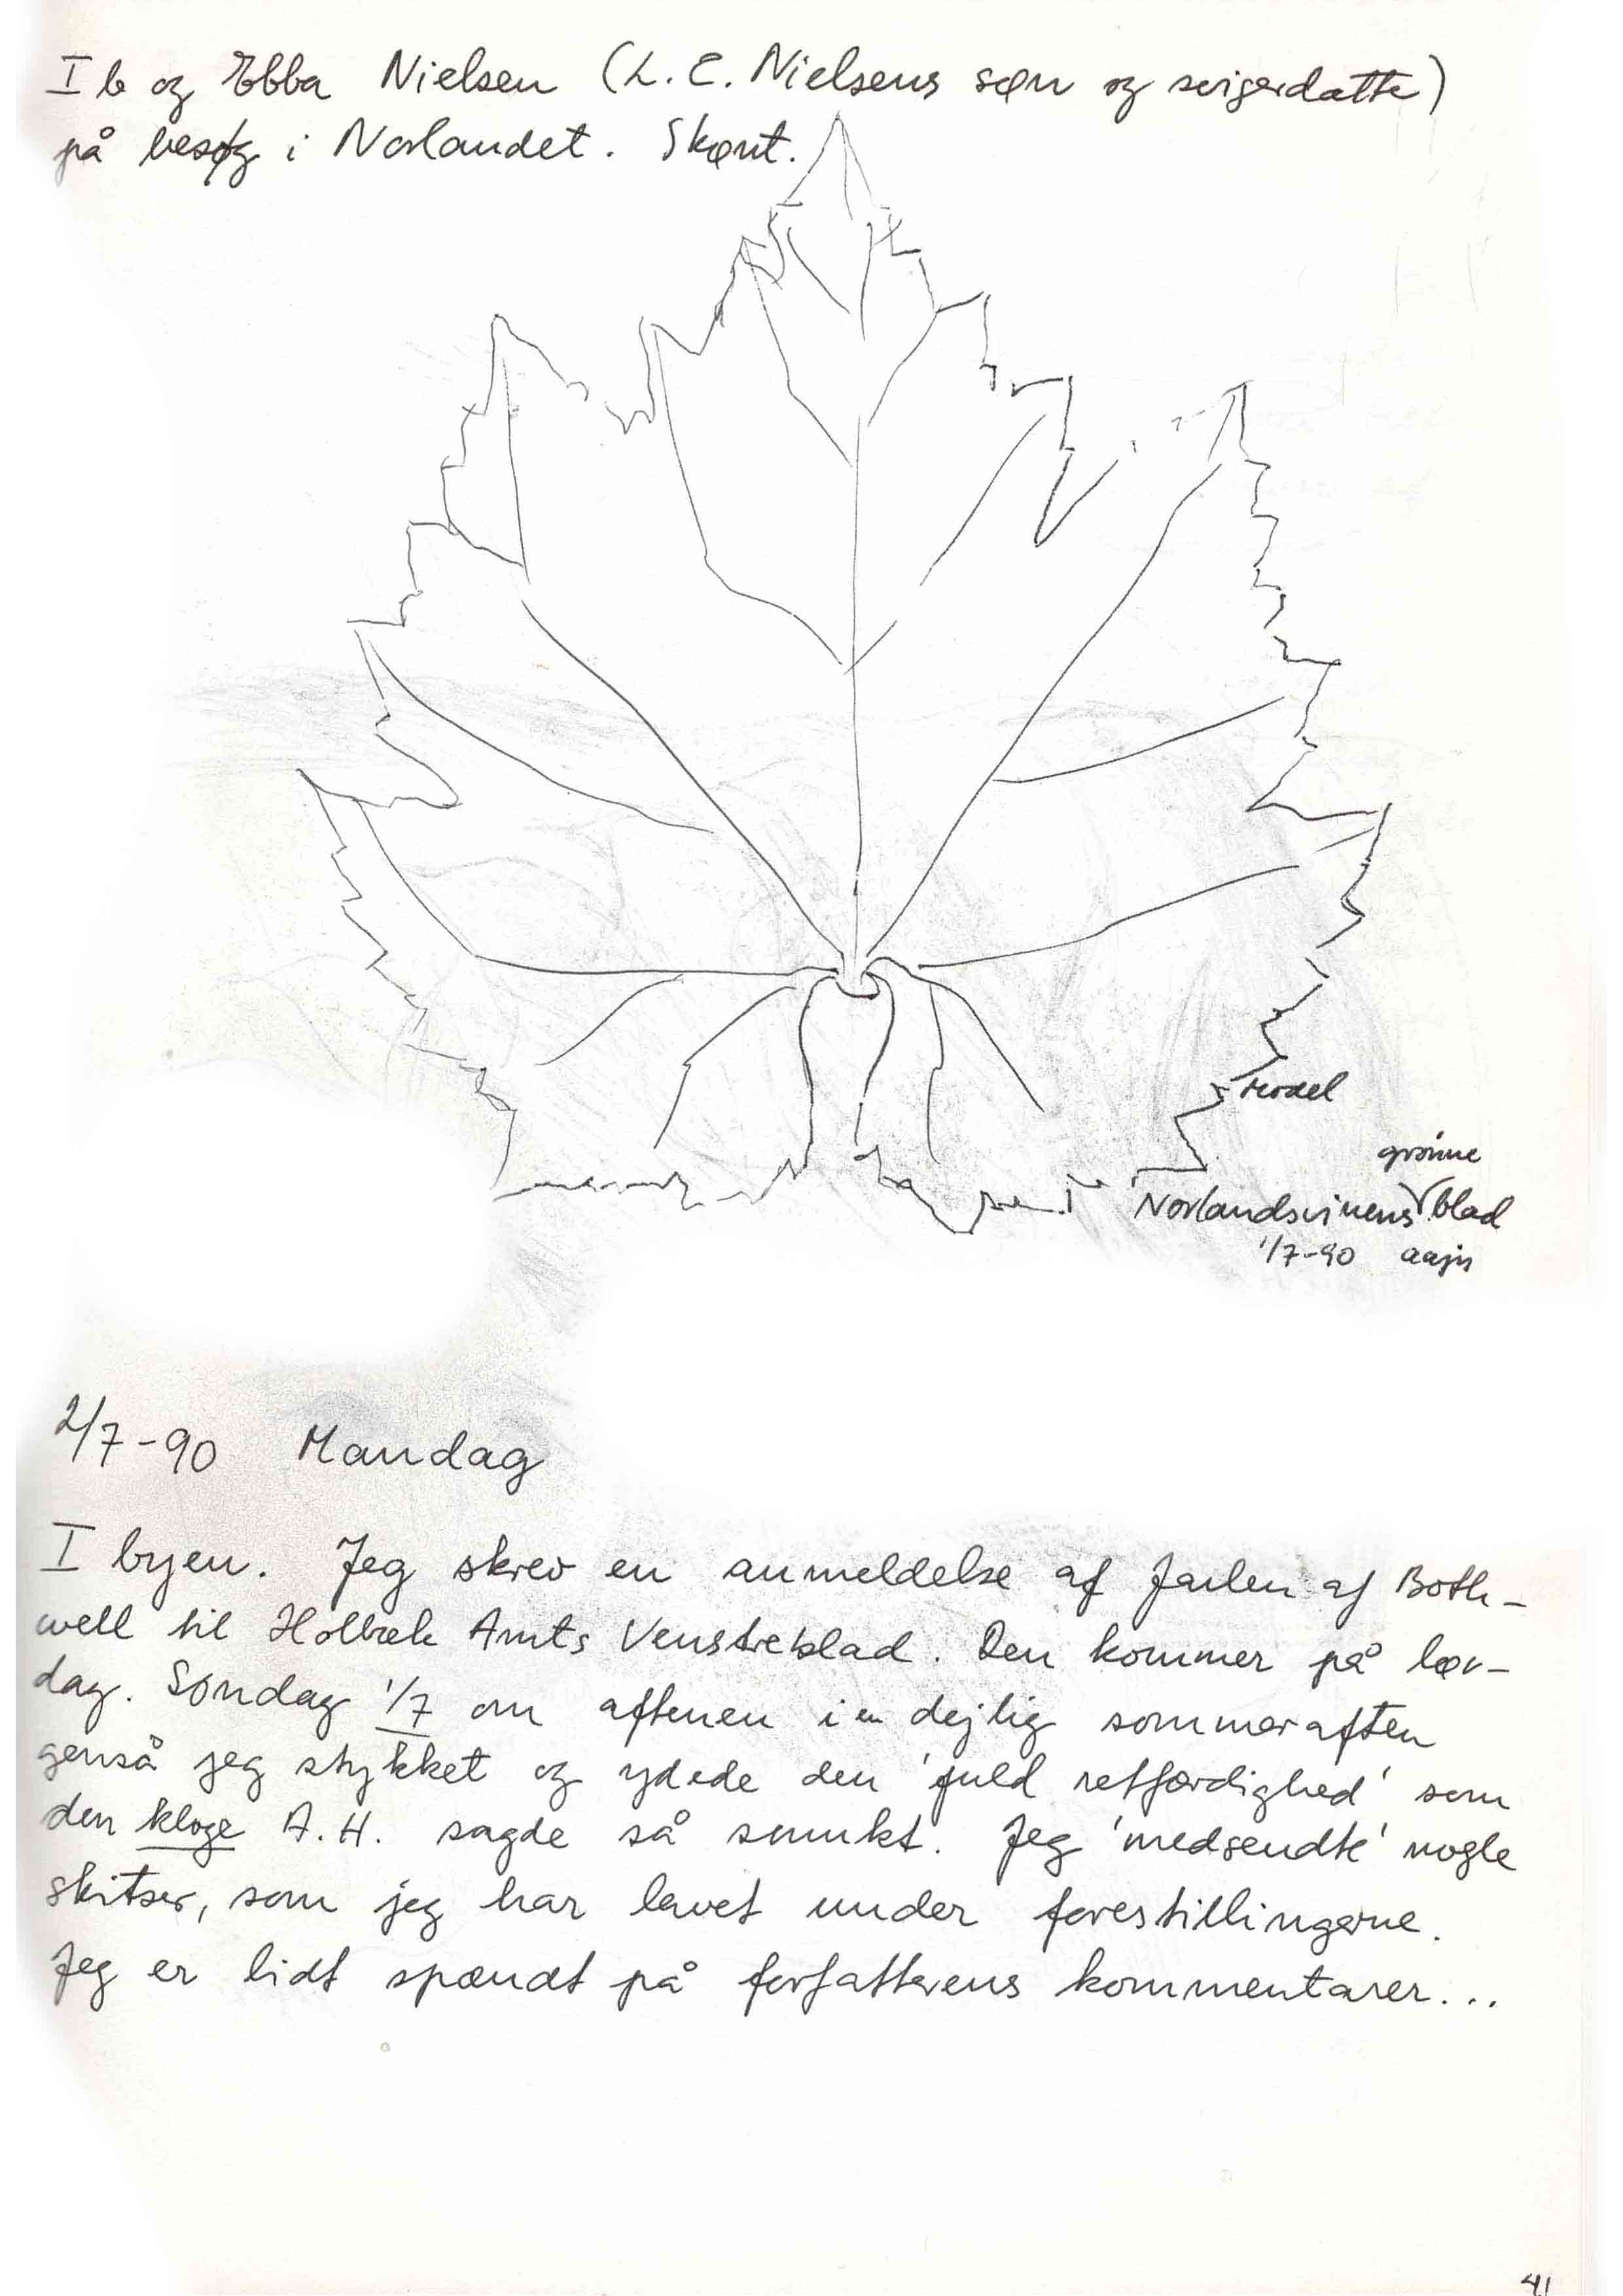 Ib og Ebba Nielsen (L. C. Nielsens søn og svigerdatte)
på besøg i Norlandet. Skønt.
model
grønne
Norlandsvinens blad
1/7-90 aajn
2/7-90 Mandag
I byen. Jeg skrev en anmeldelse af Jarlen af Both-
well til Holbæk Amts Venstreblad. Den kommer på lør-
dag. Søndag 1/7 om aftenen i en dejlig sommeraften
genså jeg stykket og ydede den 'fuld retfærdighed' som
den kloge A. H. sagde så smukt. Jeg 'medsendte' nogle
skitser, som jeg har lavet under forestillingerne.
Jeg er lidt spændt på forfatterens kommentarer...
41